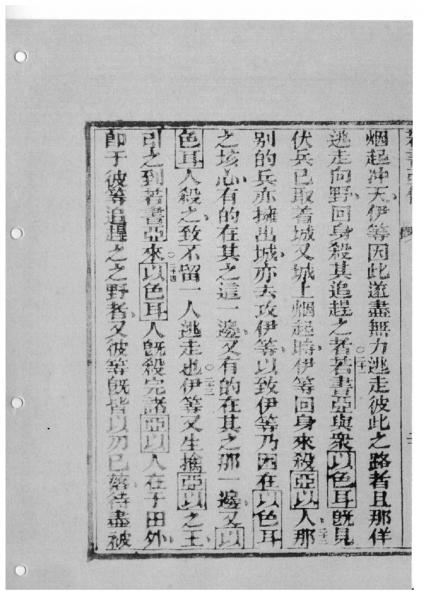 烟起冲天伊等因此遂盡無力逃走彼此之路者且那佯
逃走向野回身殺其追趕之者著書亞與衆以色耳旣見
伏兵已取着城又城上烟起時伊等回身來殺亞以人那
别的兵亦擁出城亦去攻伊等以致伊等乃因在以色耳
之垓心有的在其之這一邊又有的在其之那一邊又以
色耳人殺之致不留一人逃走也伊等又生擒亞以之王
引之到若書亞來以色耳人旣殺完諸亞以人在于田外
即于彼等追趕之之野者又彼等旣皆以刃已落待盡被